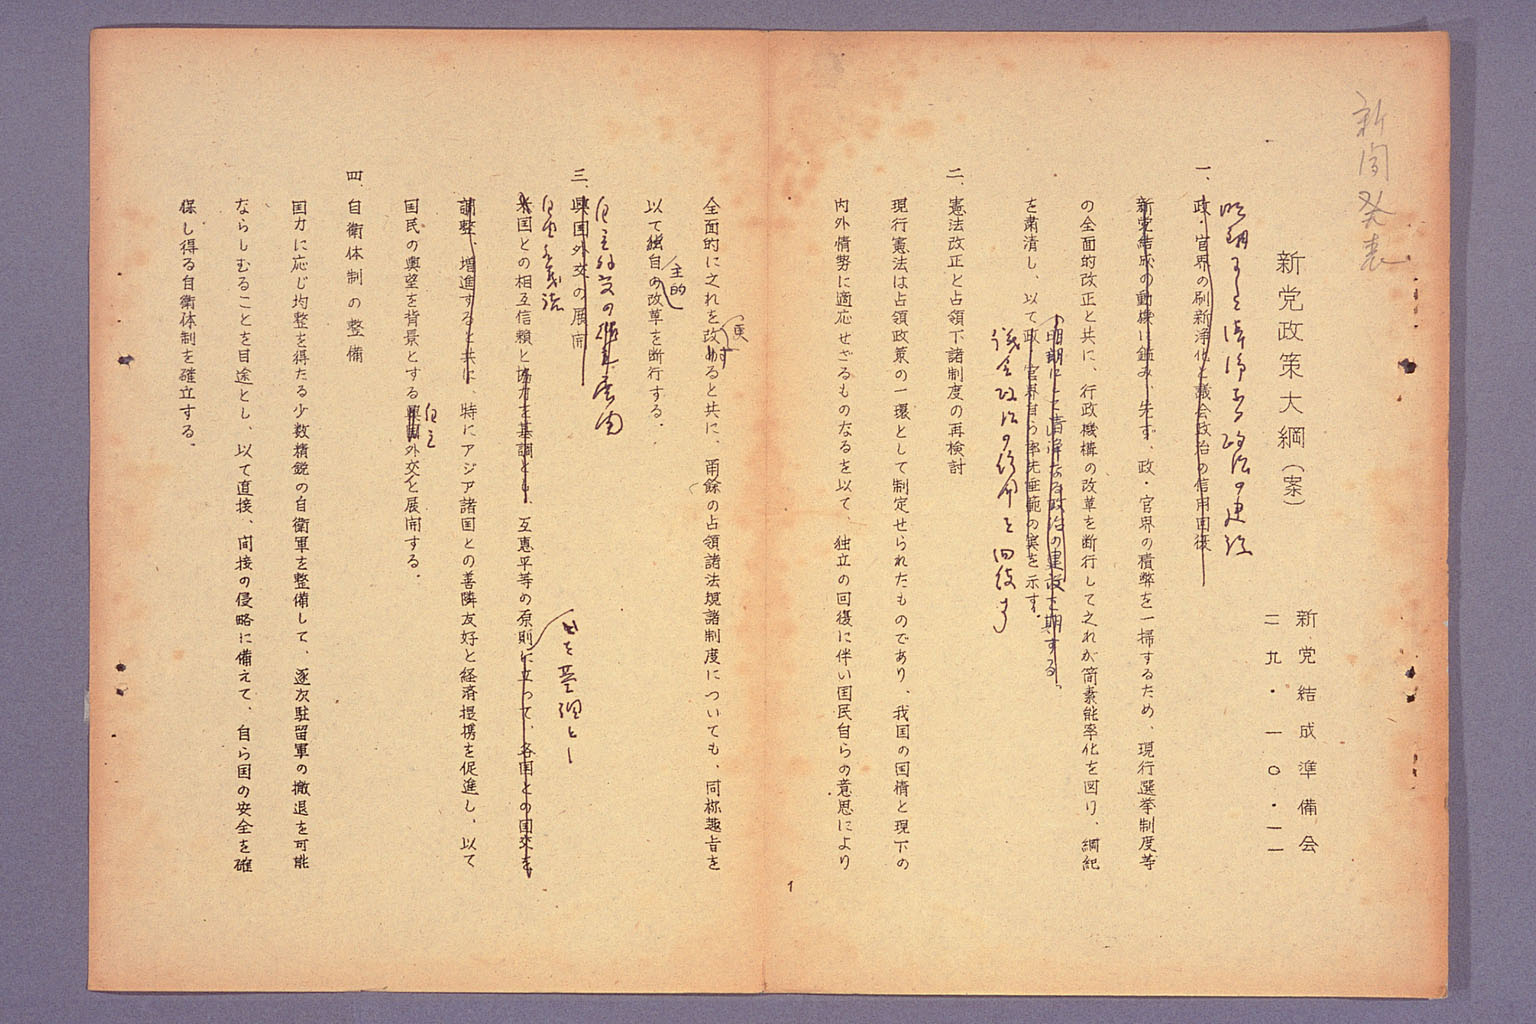 新聞発表
新党政策大綱(案)
新党結成準備会
二九・一〇・一一
明朗にして清浄なる政治の建設
一、政・官界の刷新浄化と議会政治の信用回復
新党結成の動機に鑑み、先ず、政・官界の積弊を一掃するため、現行選挙制度等
の全面的改正と共に、行政機構の改革を断行して之れが簡素能率化を図り、綱紀
明朗にして清浄なる政治の建設を期する。
を粛清し、以て政・官界自ら率先垂範の実を示す。
議会政治の信用を回復す
二、憲法改正と占領下諸制度の再検討
現行憲法は占領政策の一環として制定せられたものであり、我国の国情と現下の
内外情勢に適応せざるものなるを以て、独立の回復に伴い国民自らの意思により
更
全面的に之れを改めると共に、爾餘の占領諸法規諸制度についても、同称趣旨を
主的
以て独自の改革を断行する。
自主外交の 展開
三、興国外交の展開
自由主義諸
を基調とし
米国との相互信頼と協力を基調とし、互恵平等の原則に立って、各国との国交を
調整、増進すると共に、特にアジア諸国との善隣友好と経済提携を促進し、以て
自主
国民の輿望を背景とする興国外交と展開する。
四、自衛体制の整備
国力に応じ均整を得たる少数精鋭の自衛軍を整備して、逐次駐留軍の撤退を可能
ならしむることを目途とし、以て直接、間接の侵略に備えて、自ら国の安全を確
保し得る自衛体制を確立する。
1